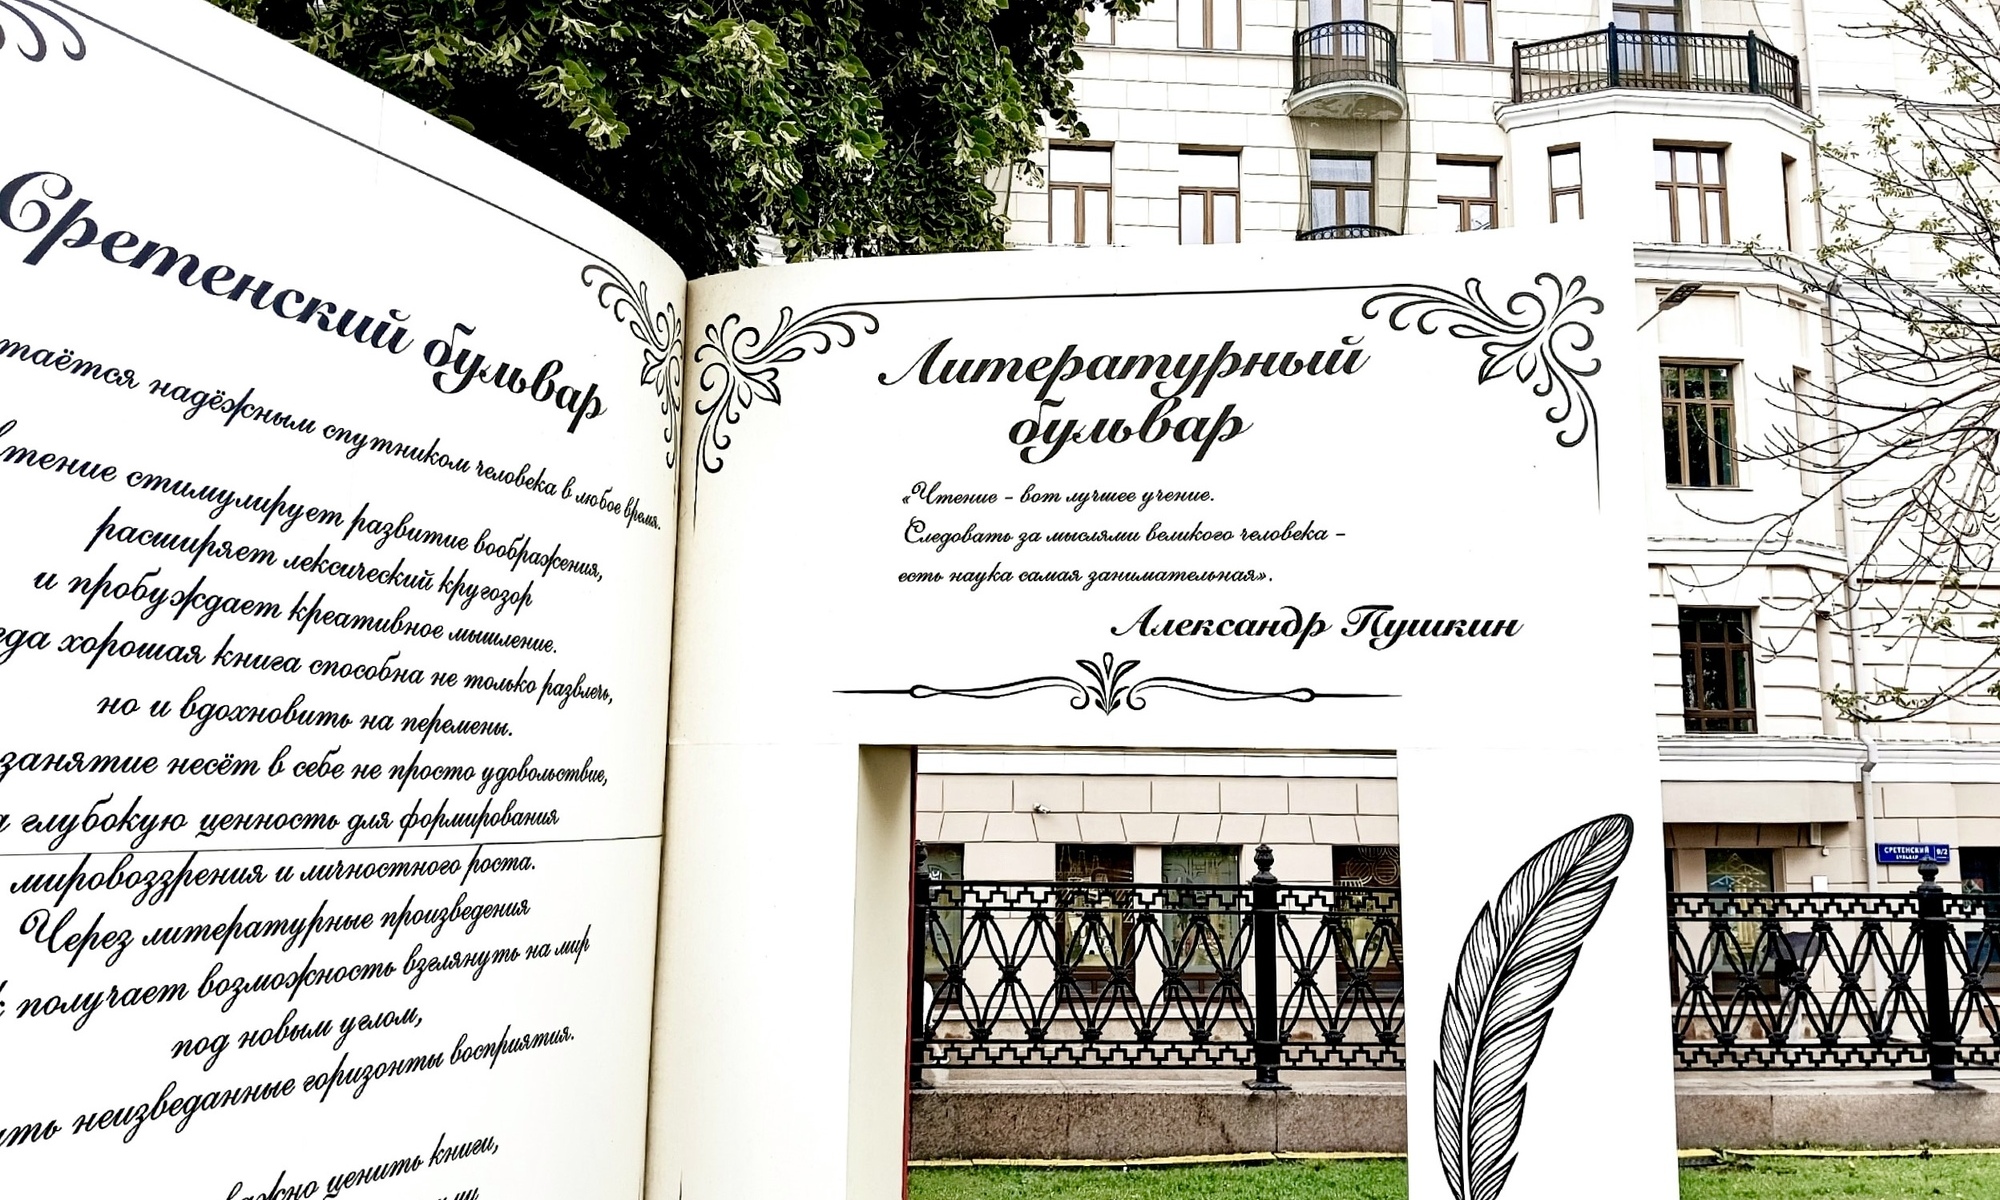 Сретенский бульвар
надёжным спутником человека в любое время.
стимулирует развитие воображения,
расширяет лексический кругозор
и пробуждает креативное мышление.
хорошая книга способна не только развлечь,
но и вдохновить на перемены.
занятие несёт в себе не просто удовольствие,
глубокую ценность для формирования
мировоззрения и личностного роста.
Через литературные произведения
получает возможность взглянуть на мир
под новым углом,
неизведанные горизонты восприятия.
ценить книги,
Литературный
бульвар
«Чтение – вот лучшее учение.
Следовать за мыслями великого человека –
есть наука самая занимательная».
Александр Пушкин
СРЕТЕНСКИЙ
БУЛЬВАР
9/2